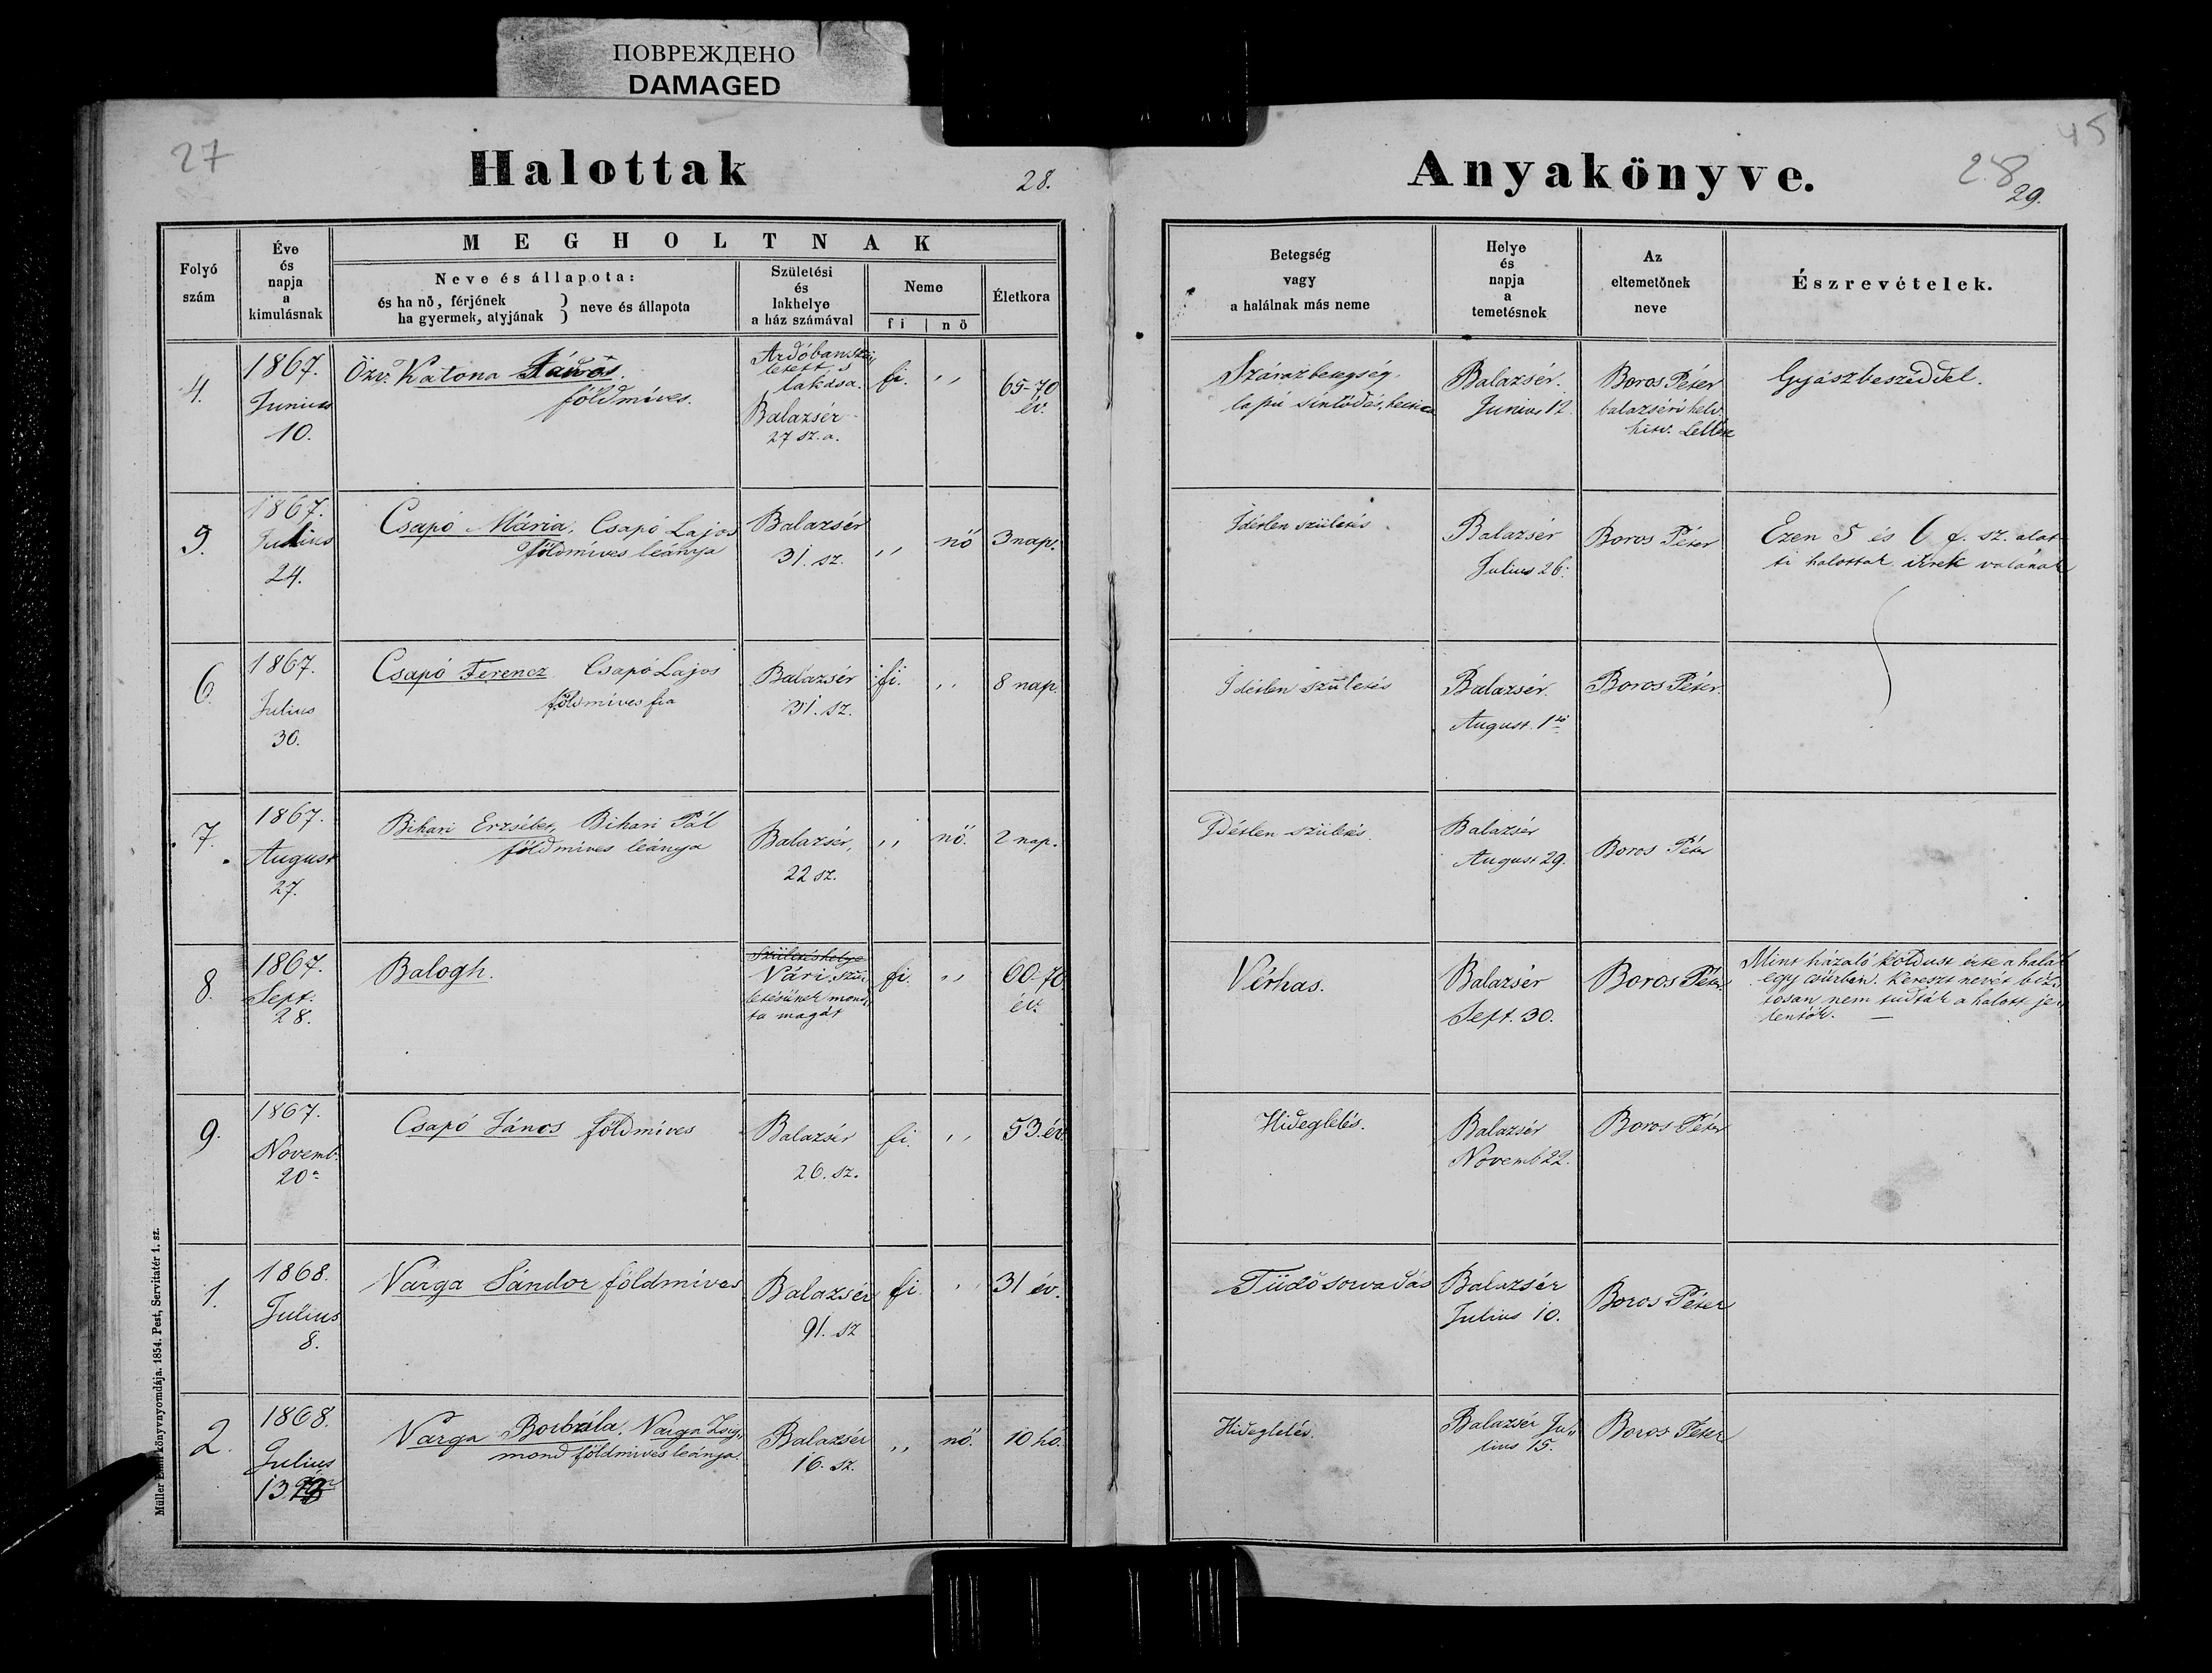 ПОВРЕЖДЕНО
DAMAGED
27
Halottak
28.
Folyó
szám
Éve
és
napja
a
kimulásnak
MEGHOLTNAK
Neve és állapota:
és ha nő, férjének
ha gyermek, atyjának
neve és állapota
Születési
és
lakhelye
a ház számával
Neme
fi | nő
Életkora
4.
1867.
Junius
10.
Özv. Katona
földmíves.
Ardóban szü„
letett, s
lakása.
Balazsér
27 sz. a.
fi.
„
65-70
év.
9.
1867.
Julius
24.
Csapó Mária, Csapó Lajos
földmíves leánya
Balazsér
31. sz.
„
nő
3 nap.
6.
1867.
Julius
30.
Csapó Ferencz Csapó Lajos
földmíves fia
Balazsér
31. sz.
fi.
„
8 nap.
7.
1867.
August
27.
Bihari Erzsébet, Bihari Pál
földmíves leánya
Balazsér,
22 sz.
„
nő.
2 nap.
8.
1867.
Sept.
28.
Balogh.
Születés helye
Vári szü„
letésünek mond„
ta magát
fi.
„
60-70.
év.
9.
1867.
Novemb.
20a
Csapó János földmíves
Balazsér
26. sz.
fi.
„
53. év.
1.
1868.
Julius
8.
Varga Sándor földmíves
Balazsér
91. sz
fi.
„
31 év.
2.
1868.
Julius
13.
Varga Borbála, Varga Zsig„
mond földmives leánya.
Balazsér
16. sz.
„
nő.
10 hó.
Müller Emil könyvnyomdája. 1854. Pest, Servitatér 1. sz.
Anyakönyve.
45
28
29.
Betegség
vagy
a halálnak más neme
Helye
és
napja
a
temetésnek
Az
eltemetőnek
neve
Észrevételek.
Szárazbetegség,
Balazsér.
Junius 12.
Boros Péter
balazséri helv.
hitv. Lelkész
Gyászbeszéddel.
Idétlen születés
Balazsér
Julius 26.
Boros Péter
Ezen 5 és 6 f. sz. alat
ti halottak ikrek valának
Idétlen születés
Balazsér.
August. 1ső
Boros Péter.
Idétlen születés.
Balazsér
August 29.
Boros Péter
Vérhas.
Balazsér
Sept. 30.
Boros Péter.
Mint házaló koldust érte a halál
egy csűrben. Kereszt nevét biz„
tosan nem tudták a halott je„
lentők. —
Hideglelés.
Balazsér
Novemb 22.
Boros Péter
Tüdősorvadás
Balazsér
Julius 10.
Boros Péter
Hideglelés.
Balazsér Ju„
lius 15.
Boros Péter